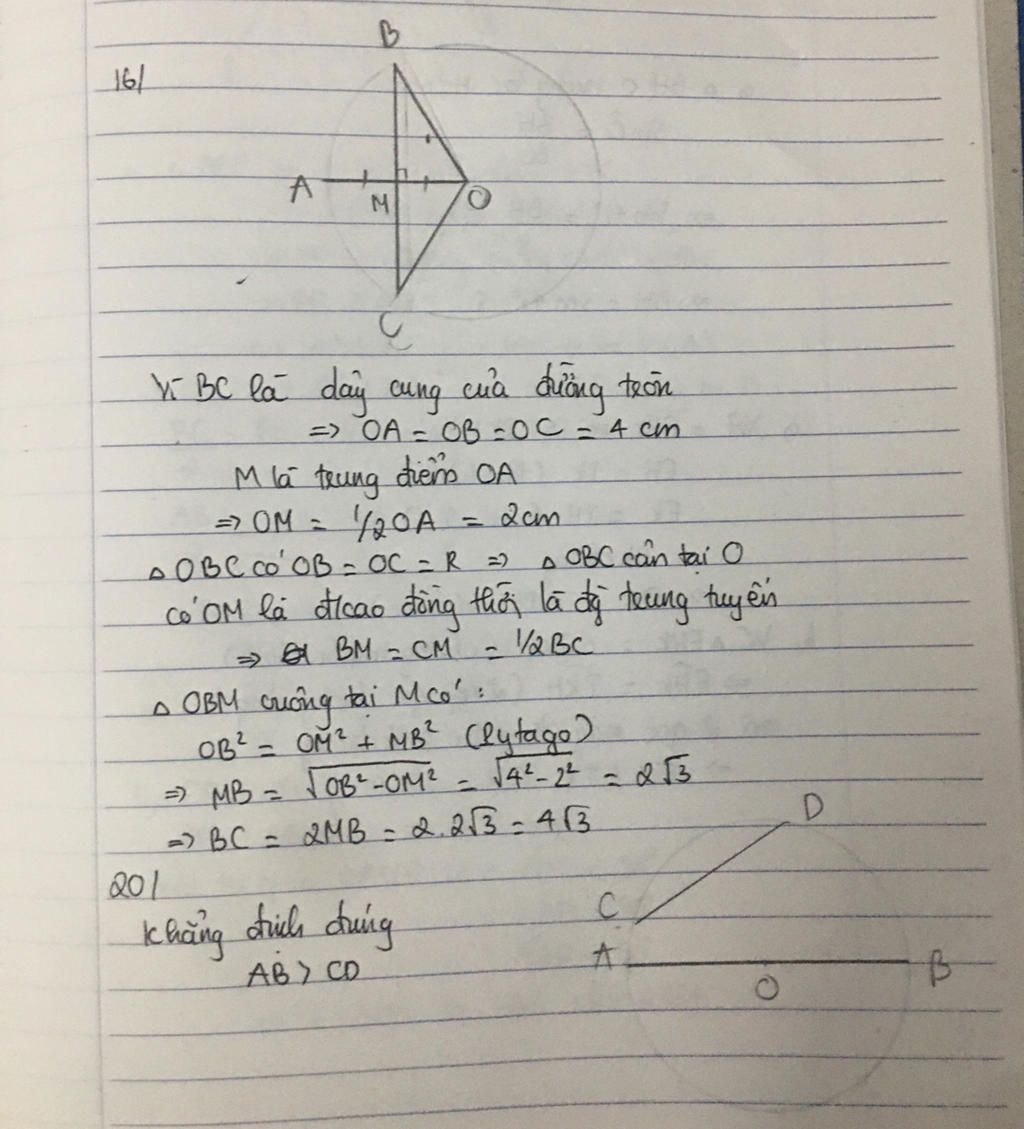 16/
B
A
M
O
C
Vì BC là dây cung của đường tròn
=> OA = OB = OC = 4 cm
M là trung điểm OA
=> OM = 1/2 OA = 2cm
△ OBC có OB = OC = R => △ OBC cân tại O
có OM là đ/cao đồng thời là đg trung tuyến
=> BM = CM = 1/2 BC
△ OBM vuông tại M có :
OB² = OM² + MB² (Pytago)
=> MB = √(OB² - OM²) = √(4² - 2²) = 2√3
=> BC = 2MB = 2.2√3 = 4√3
D
20/
C
Khẳng định đúng
A
B
AB > CD
O